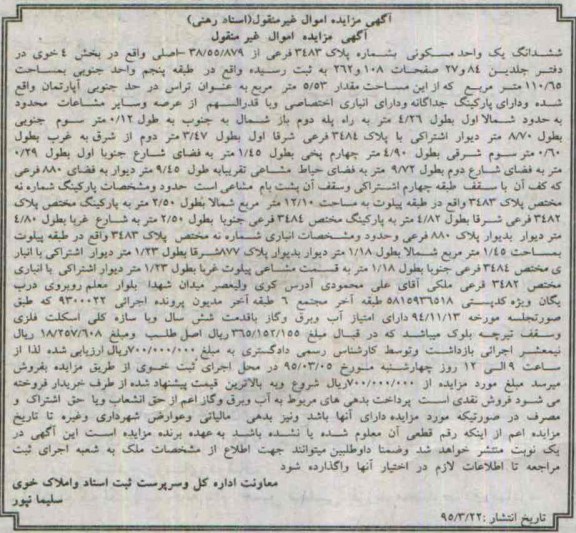 آگهی مزایده اموال غیرمنقول(اسناد رهنی)
آگهی مزایده اموال غیر منقول
ششدانگ یک واحد مسکونی بشماره پلاک ۳۴۸۳ فرعی از ۳۸/۵۵/۸۷۹ -اصلی واقع در بخش ۴ خوی در
دفتر جلدین ۸۴و۲۷ صفحات ۱۰۸و۲۶۲ به ثبت رسیده واقع در طبقه پنجم واحد جنوبی بمساحت
۱۱۰/۶۵ متر مربع که از این مساحت مقدار ۵/۵۳ متر مربع به عنوان تراس در حد جنوبی آپارتمان واقع
شده ودارای پارکینگ جداگانه ودارای انباری اختصاصی وبا قدرالسهم از عرصه وسایر مشاعات محدود
به حدود شمالا اول بطول ۴/۲۶ متر به راه پله دوم باز شمال به جنوب به طول ۰/۱۲ متر سوم جنوبی
بطول ۸/۷۰ متر دیوار اشتراکی با پلاک ۳۴۸۴ فرعی شرقا اول بطول ۳/۴۷ متر دوم از شرق به غرب بطول
۰/۶۰ متر سوم شرقی بطول ۴/۹۰ متر چهارم پخی بطول ۱/۴۵ متر به فضای شارع جنوبا اول بطول ۰/۲۹
متر به فضای شارع دوم بطول ۹/۷۲ متر به فضای حیاط مشاعی تقریبابه طول ۹/۴۵ متر دیوار به فضای ۸۸۰ فرعی
که کف آن با سقف طبقه چهارم اشتراکی وسقف آن پشت بام مشاعی است حدود ومشخصات پارکینگ شماره نه
مختص پلاک ۳۴۸۳ واقع در طبقه پیلوت به مساحت ۱۲/۱۰ متر مربع شمالا بطول ۲/۵۰ متر به پارکینگ مختص پلاک
۳۴۸۲ فرعی شرقا بطول ۴/۸۲ متر به پارکینگ مختص ۳۴۸۴ فرعی جنوبا بطول ۲/۵۰ متر به شارع غربا بطول ۴/۸۰
متر دیوار بدیوار پلاک ۸۸۰ فرعی وحدود ومشخصات انباری شماره نه مختص پلاک ۳۴۸۳ واقع در طبقه پیلوت
بمساحت ۱/۴۵ متر مربع شمالا بطول ۱/۱۸ متر دیوار بدیوار پلاک ۸۷۷شرقا بطول ۱/۲۳ متر دیوار اشتراکی با انبار
ی مختص ۳۴۸۴ فرعی جنوبا بطول ۱/۱۸ متر به قسمت مشاعی پیلوت غربا بطول ۱/۲۳ متر دیوار اشتراکی با انباری
مختص ۳۴۸۲ فرعی ملکی آقای علی محمودی آدرس کوی ولیعصر میدان شهدا بلوار معلم روبروی درب
یگان ویژه کدپستی ۵۸۱۵۹۳۶۵۱۸ طبقه آخر مجتمع ۶ طبقه آخر مدیون پرونده اجرائی ۹۳۰۰۰۲۲ که طبق
صورتجلسه مورخه ۹۴/۱۱/۱۳ دارای امتیاز آب وبرق وگاز باقدمت شش سال وبا سازه کلی اسکلت فلزی
وسقف تیرچه بلوک میباشد که در قبال مبلغ ۳۶۵/۱۵۲/۱۵۵ ریال اصل طلب ومبلغ ۱۸/۲۵۷/۶۰۸ ریال
نیمعشر اجرائی بازداشت وتوسط کارشناس رسمی دادگستری به مبلغ ۷۰۰/۰۰۰/۰۰۰ریال ارزیابی شده لذا از
ساعت ۹ الی ۱۲ روز چهارشنبه مورخ ۹۵/۰۳/۰۵ در محل اجرای ثبت خوی از طریق مزایده بفروش
میرسد مبلغ مورد مزایده از ۷۰۰/۰۰۰/۰۰۰ریال شروع وبه بالاترین قیمت پیشنهاد شده از طرف خریدار فروخته
می شود فروش نقدی است پرداخت بدهی های مربوط به آب وبرق وگاز اعم از حق انشعاب ویا حق اشتراک و
مصرف در صورتیکه مورد مزایده دارای آنها باشد ونیز بدهی مالیاتی وعوارض شهرداری وغیره تا تاریخ
مزایده اعم از اینکه رقم قطعی آن معلوم شده یا نشده باشد به عهده برنده مزایده است این آگهی در
یک نوبت منتشر خواهد شد وضمنا داوطلبین میتوانند جهت اطلاع از مشخصات ملک به شعبه اجرای ثبت
مراجعه تا اطلاعات لازم در اختیار آنها واگذارده شود
معاونت اداره کل وسرپرست ثبت اسناد واملاک خوی
سلیما نپور
تاریخ انتشار :۹۵/۳/۲۲